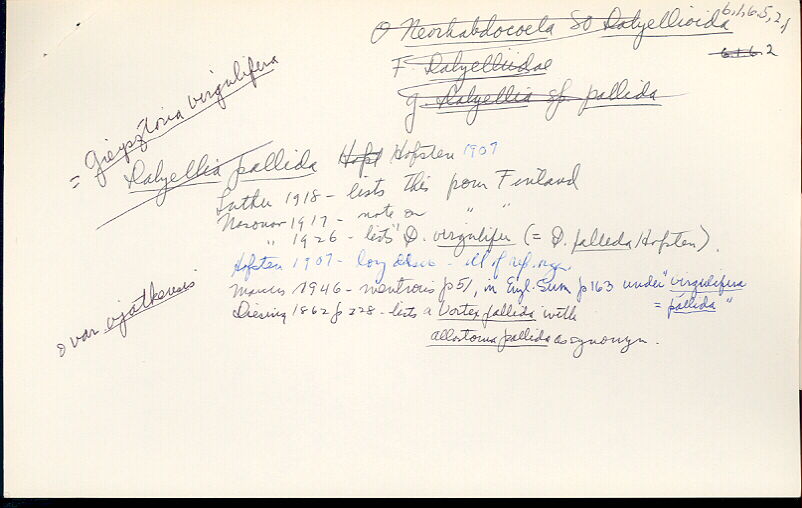 O Neorhabdocoela SO Dalyellioida 6.1.6.5,2,1
F. Dalyelliidae 6.1.6.2
g. Dalyellia sp. pallida
= Gieysztoria virgulifera
Dalyellia pallida Hofst Hofsten 1907
Luther 1918 - lists this from Finland
Nasonov 1917 - note on " "
" 1926 - lists D. virgulifer (= D. pallida Hofsten).
Hofsten 1907 - long desc - ill of rep. organ
Marcus 1946 - mentions p51, in Engl. Sum p163 under "virgulifera
= pallida"
Diesing 1862 p 228 - lists a Vortex pallida with
allostoma pallida as synonym.
& var. vjatkensis